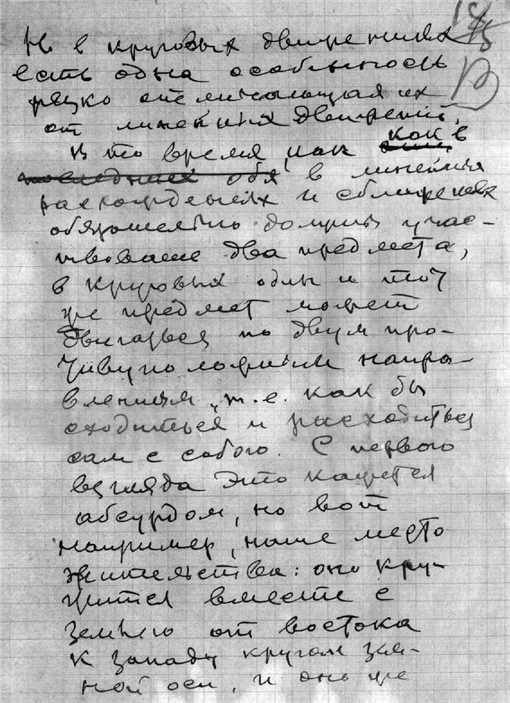 Но в круговых движениях
есть одна особенность
резко отличающая их
от линейных движений.
В то время, как как в
последних оба в линейных
расхождениях и сближениях
обязательно должны учас-
твовать два предмета,
в круговых один и тот
же предмет может
двигаться по двум про-
тивуположным напра-
влениям, т.е. как бы
сходиться и расходиться
сам с собою. С первого
взгляда это кажется
абсурдом, но вот
например, наше место
жительства: оно кру-
жится вместе с
землею от востока
к западу кругом зем-
ной оси, и оно же